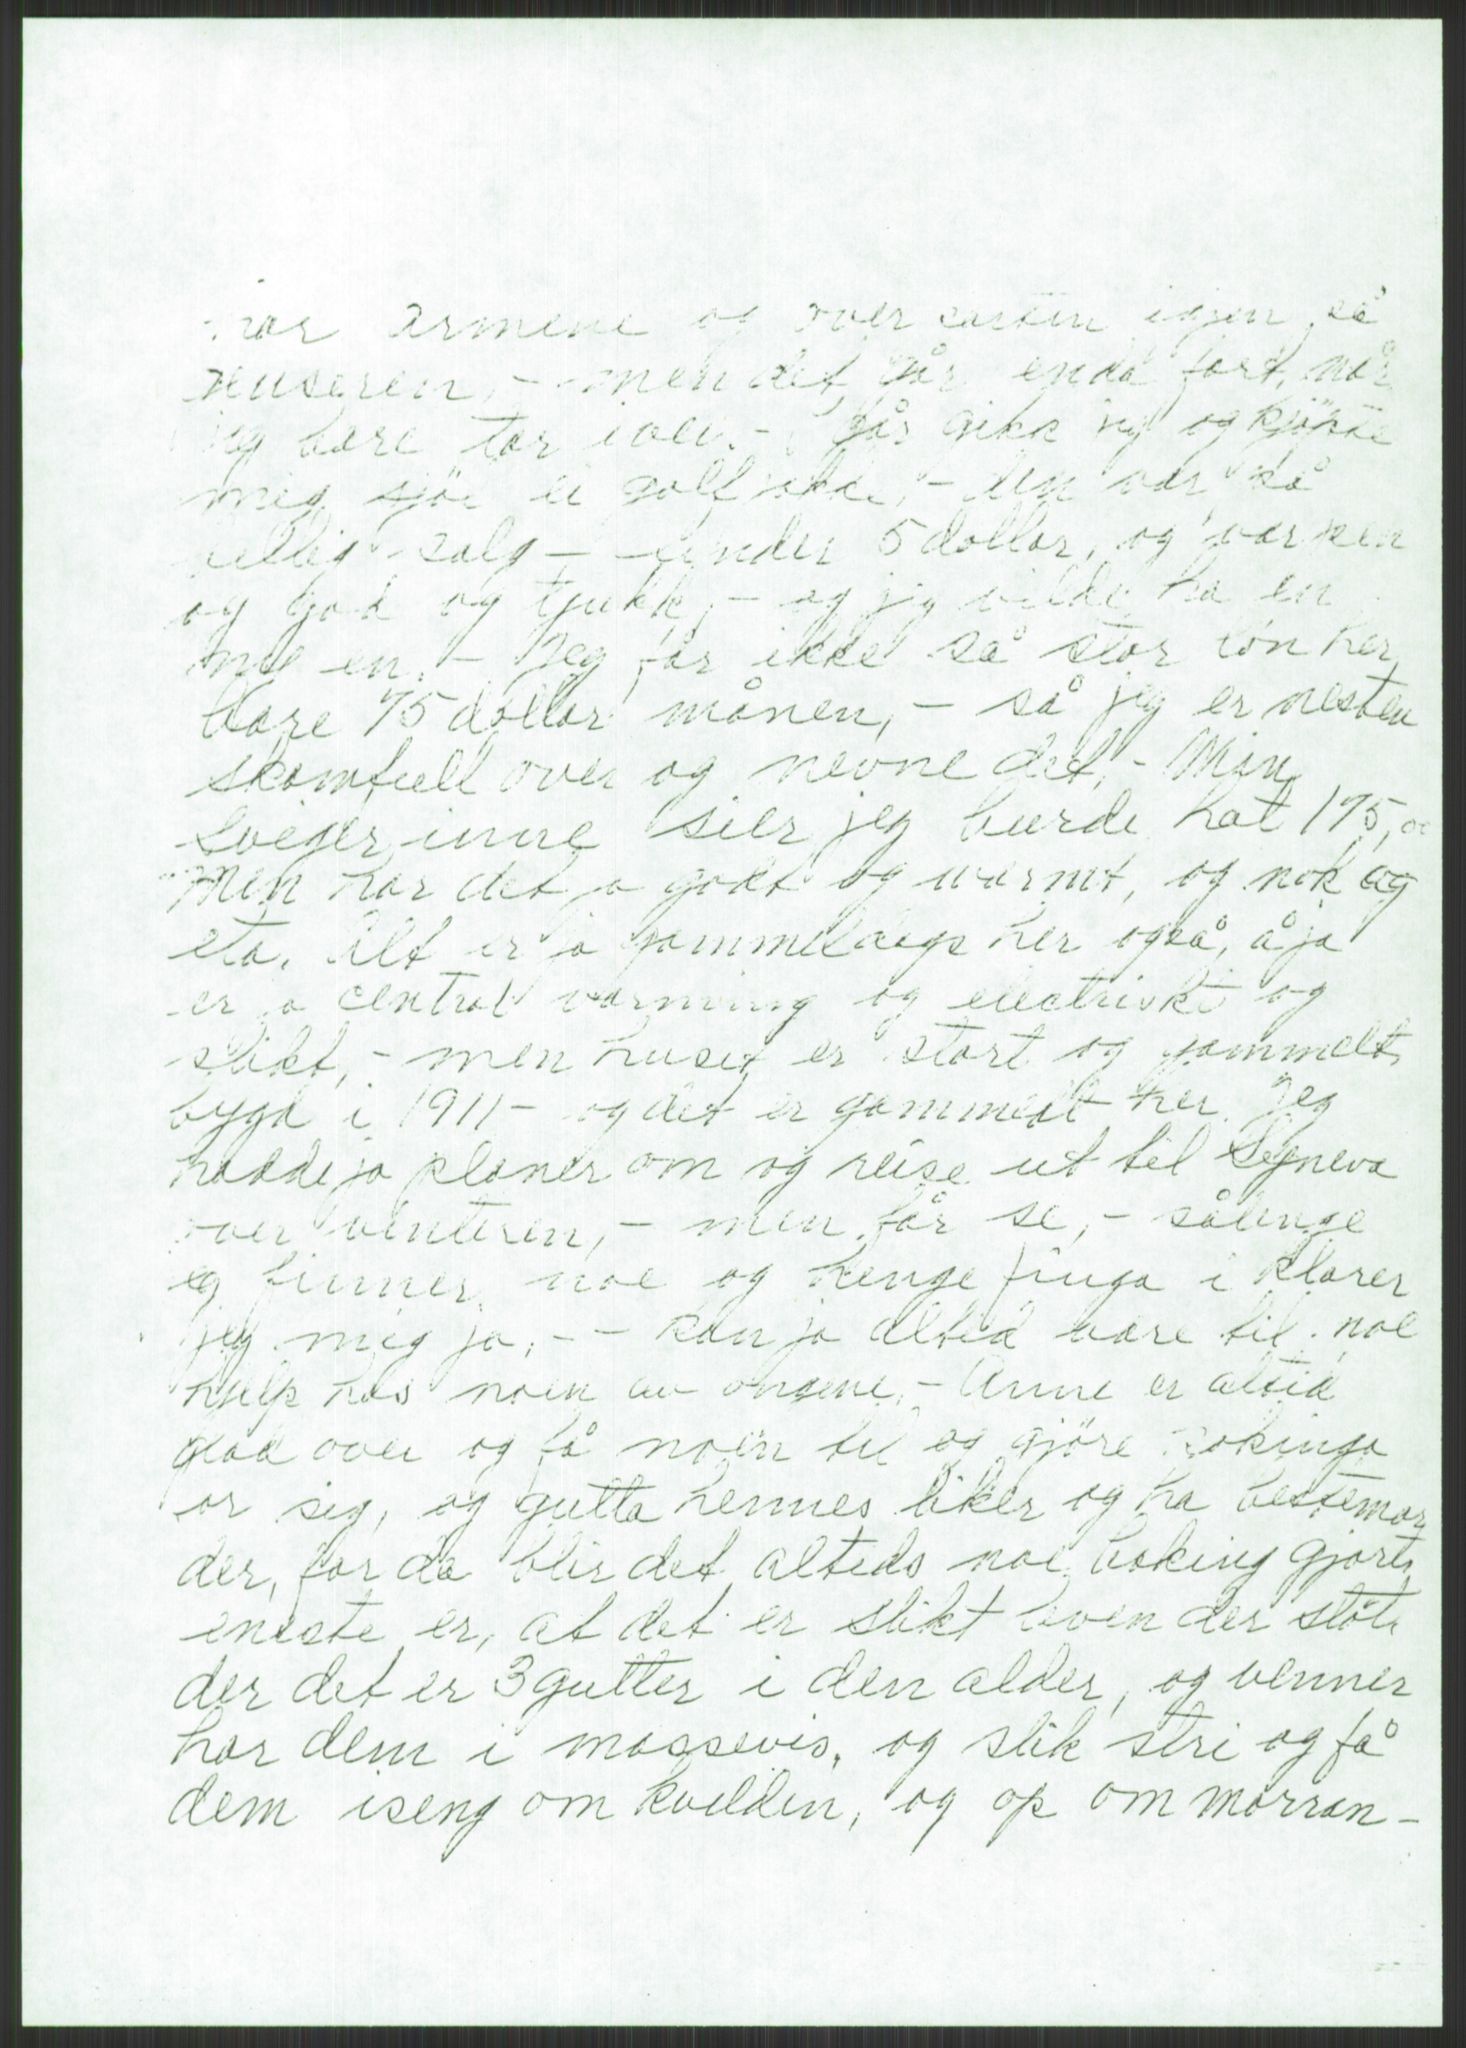 har armene og over sariten igjen så
museren, - men det går enda fort, når
jeg bare tar ivei. - I går gikk jeg og kjøpte
meg sjøl ei golf jakke, - den var så
billig salg - under 5 dollar, og var pen
og god og tjukk, - og jeg vilde ha en
ny en. - Jeg får ikke så stor løn her,
bare 75 dollar månen, - så jeg er nesten
skamfull over og nevne det, - Min
svigerinne sier jeg burde hat 175,00
Men har det jo godt og varmt, og nok og
eta. Alt er jo gammeldags her også, å ja
er jo central varming og electrisk og
slikt, - men huset er stort og gammelt
bygd i 1911 - og det er gammelt her. Jeg
hadde jo planer om og reise ut til Signeva
over vinteren, - men får se, - sålenge
jeg finner noe og henge finga i klarer
jeg mig jo, - - kan jo altid være til noe
hjelp hos noen av ongene, - Anne er altid
glad over og få noen til og gjöre bakinga
for sig, og gutta hennes liker og ha bestemor
der, for da blir det altids noe baking gjort,
eneste er, at det er slikt leven der støtt
der det er 3 gutter i den alder, og venner
har dem i massevis, og slik stri og få
dem iseng om kvelden, og op om morran -